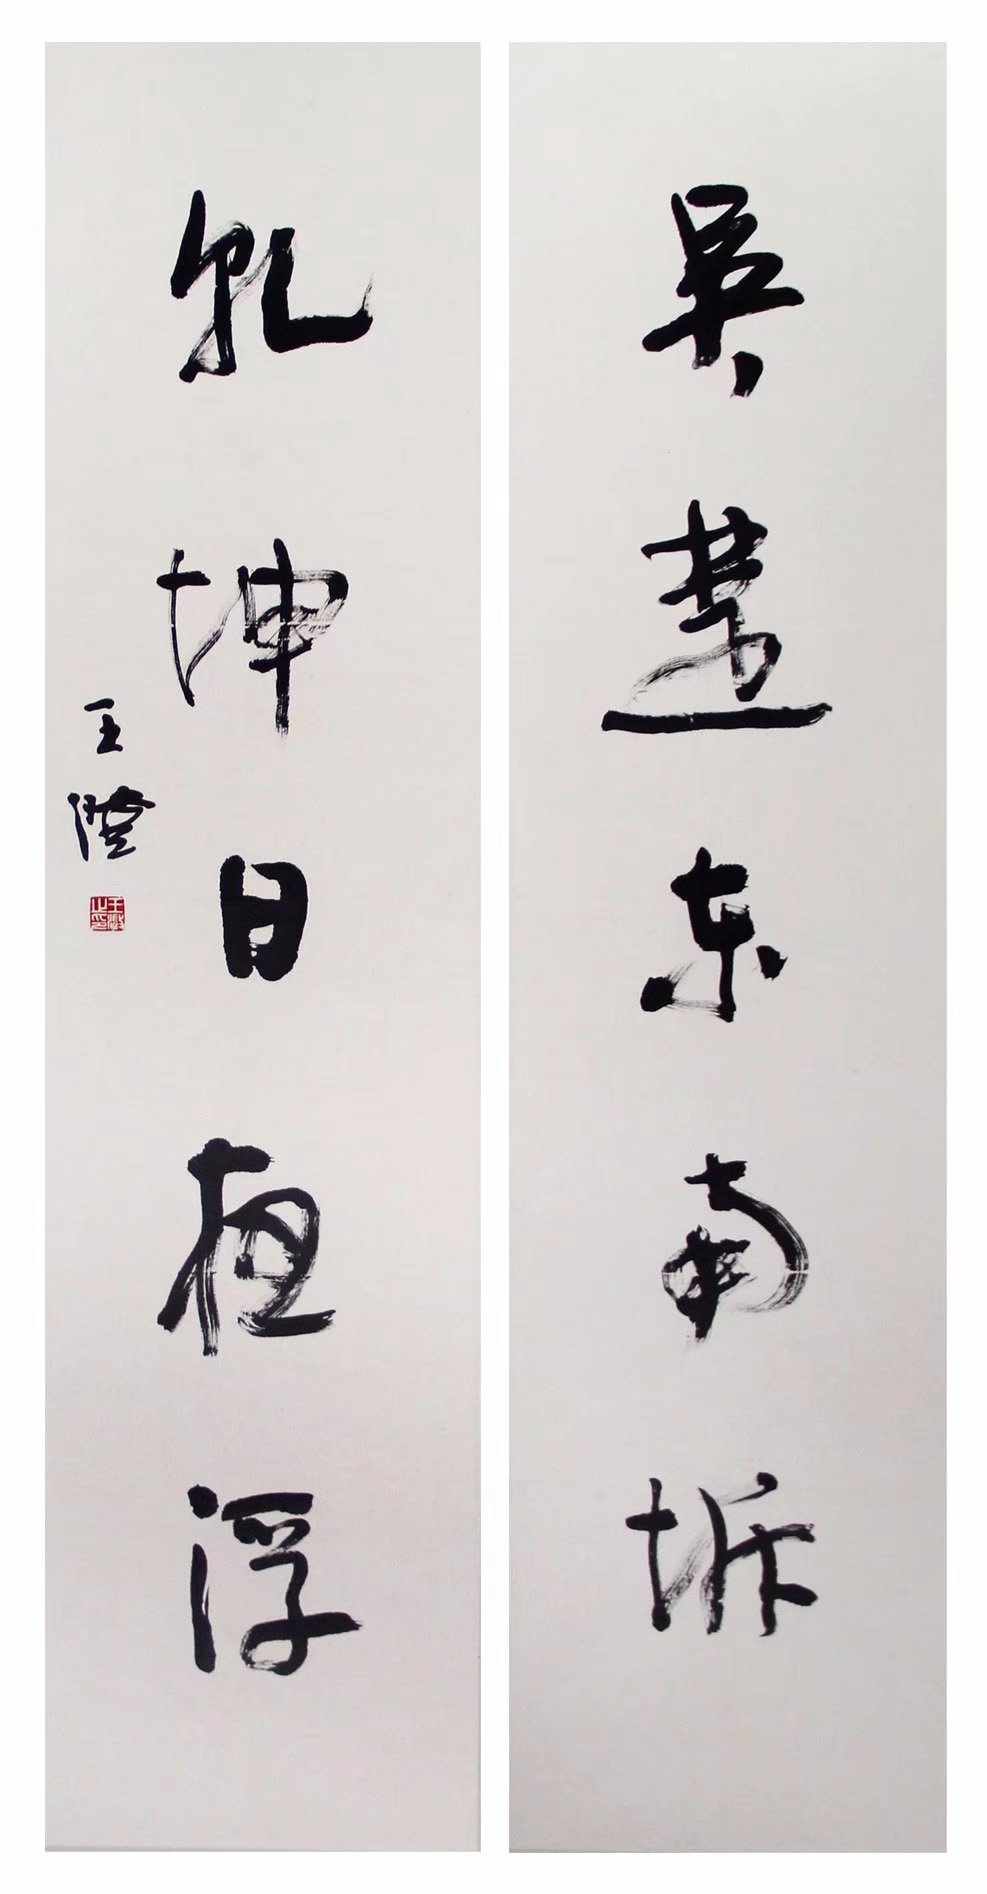 吴楚东南坼
乾坤日夜浮
王澄
王澂之印